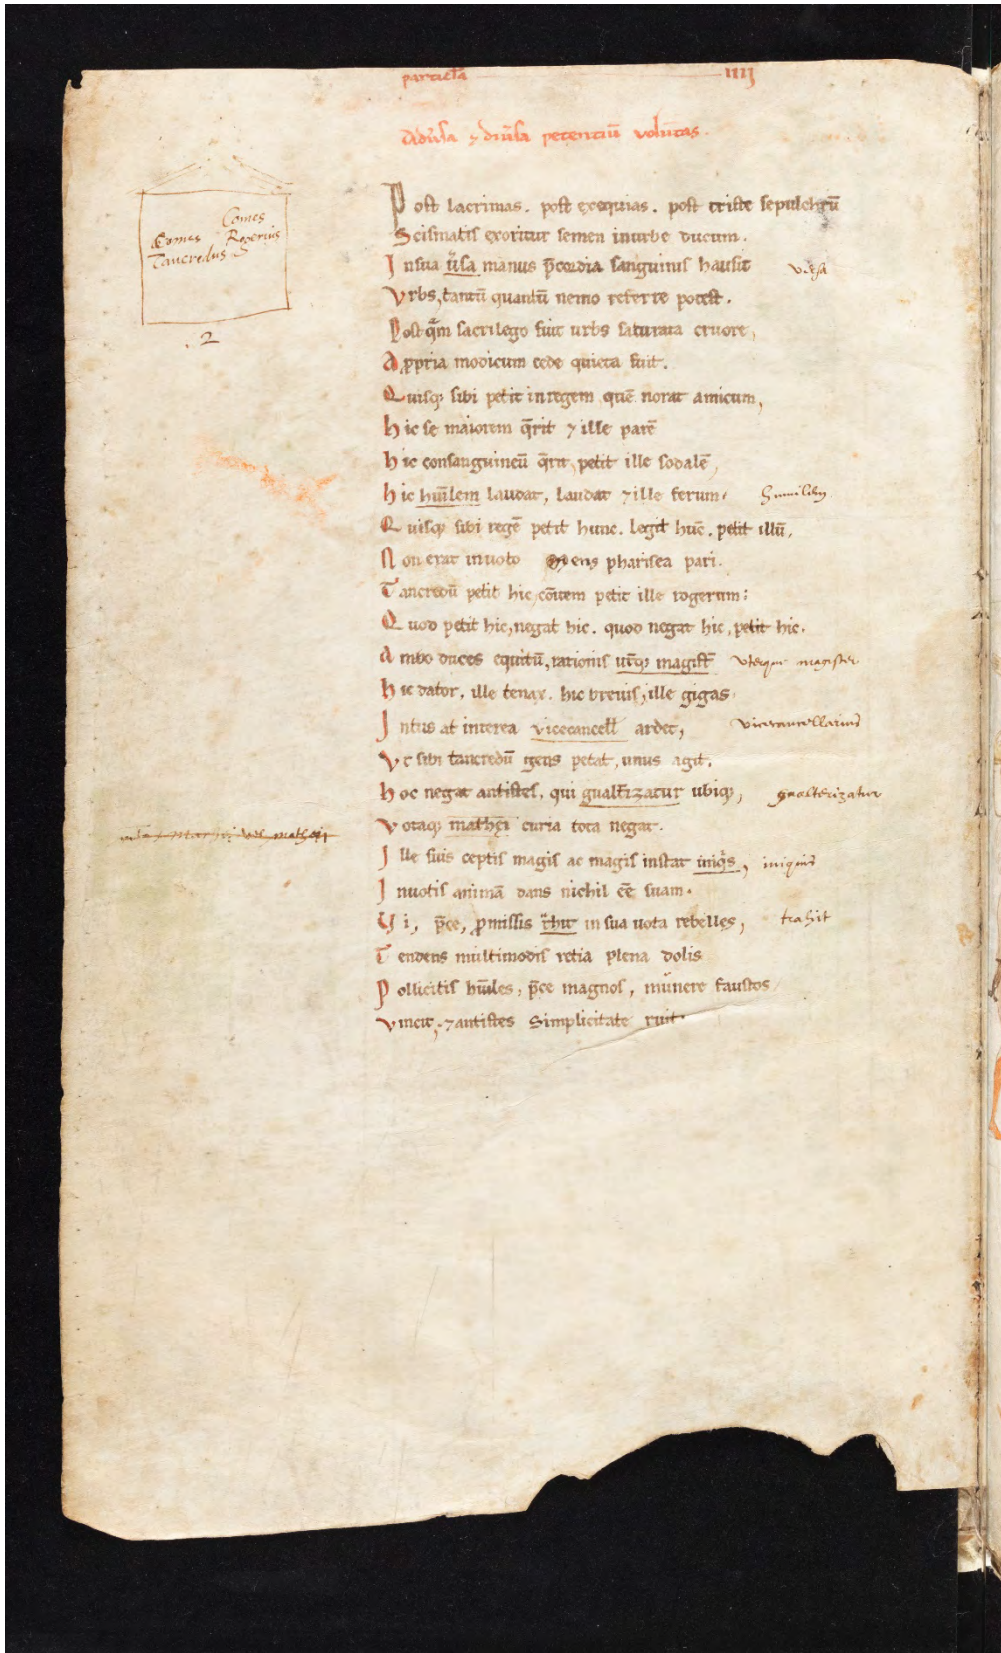 particła IIIJ
Adu̓sa ⁊ diu̓sa petentiū volūtas.
Post lacrimas. post exequias. post triste sepulchrū
Scismatis exoritur semen in urbe ducum.
In sua u̓sa manus p̄cordia sanguinis hausit
Vrbs, tantū quantū nemo referre potest.
Postq̄m sacrilego fuit urbs saturata cruore,
A ꝓpria modicum cede quieta fuit.
Quisq; sibi petit in regem quē norat amicum,
Hic se maiorem q̄rit ⁊ ille parē
Hic consanguineū q̄rit, petit ille sodalē,
Hic hūilem laudat, laudat ⁊ ille ferum.
Quisq; sibi regē petit hunc. legit hūc. petit illū.
Non erat in uoto Mens pharisea pari.
Tancredū petit hic, cōitem petit ille rogerum:
Quod petit hic, negat hic. quod negat hic, petit hic.
Ambo duces equitū, rationis ut̄q; magist̄
Hic dator, ille tenax. hic breuis, ille gigas.
Intus at interea vicecancell̄ ardet,
Vt sibi tancredū gens petat, unus agit.
Hoc negat antistes, qui gualt̄izatur ubiq;,
Votaq; mathēi curia tota negat.
Ille suis ceptis magis ac magis instat iniq̓s,
In uotis animā dans nichil eē suam.
Vi, p̄ce, ꝓmissis t̄hit in sua uota rebelles,
Tendens multimodis retia plena dolis
Pollicitis hūiles, p̄ce magnos, munere faustos
Vincit, ⁊ antistes Simplicitate ruit.
Comes Tancredus
Comes Rogerius
2
versa
humilem
Vterque magister
vicecancellarius
gualterizatur
iniquus
trahit